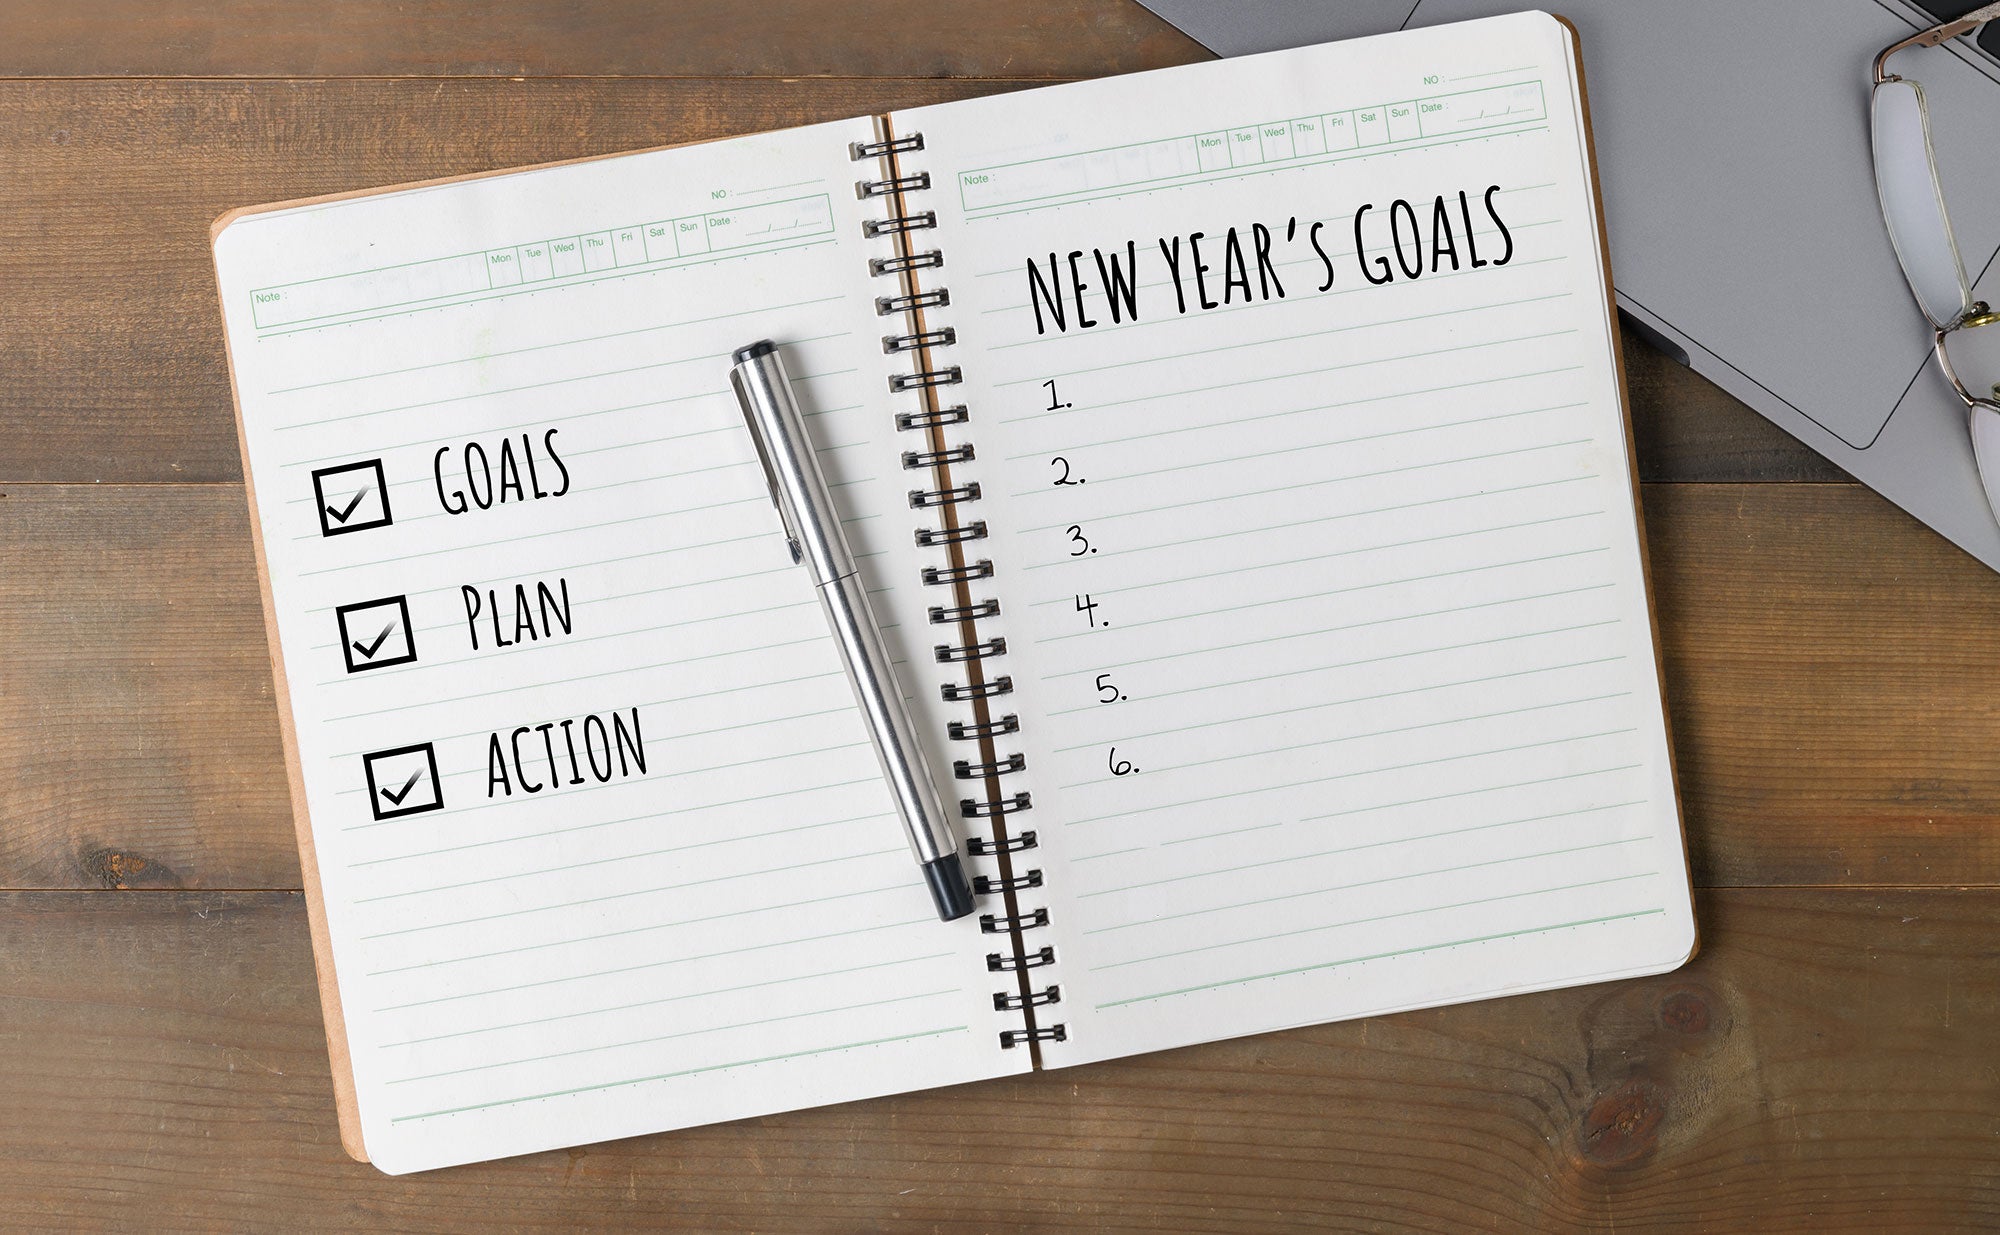 NO :
Note :
Mon Tue Wed Thu Fri Sat Sun Date : __/__/__
GOALS
PLAN
ACTION
NO :
Note :
Mon Tue Wed Thu Fri Sat Sun Date : __/__/__
NEW YEAR'S GOALS
1.
2.
3.
4.
5.
6.